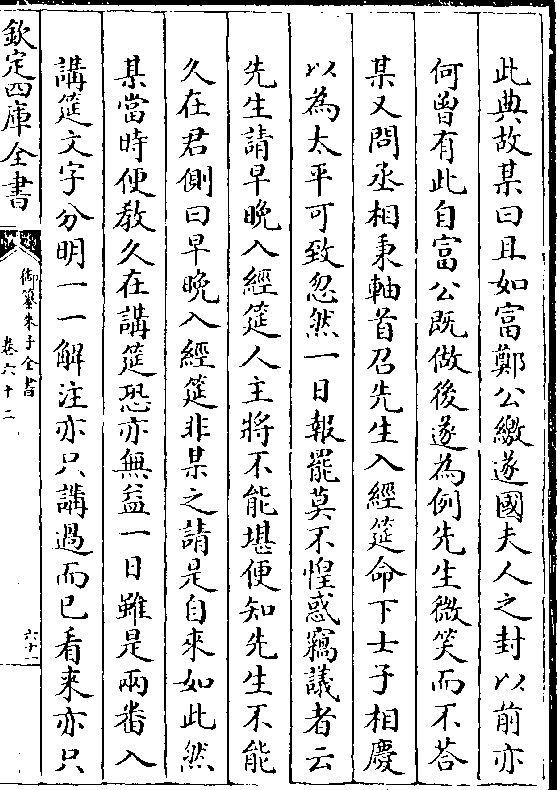 此典故某曰且如富鄭公繳遂國夫人之封以前亦
何曾有此自富公既做後遂為例先生微笑而不荅
某又問丞相秉軸首召先生入經筵命下士子相慶
以為太平可致忽然一日報罷莫不惶惑竊議者云
先生請早晚入經筵人主將不能堪便知先生不能
久在君側曰早晚入經筵非某之請是自來如此然
某當時便教久在講筵恐亦無益一日雖是兩番入
講筵文字分明一一解注亦只講過而已看來亦只
欽定四庫全書
御纂朱子全書
卷六十二
六十二